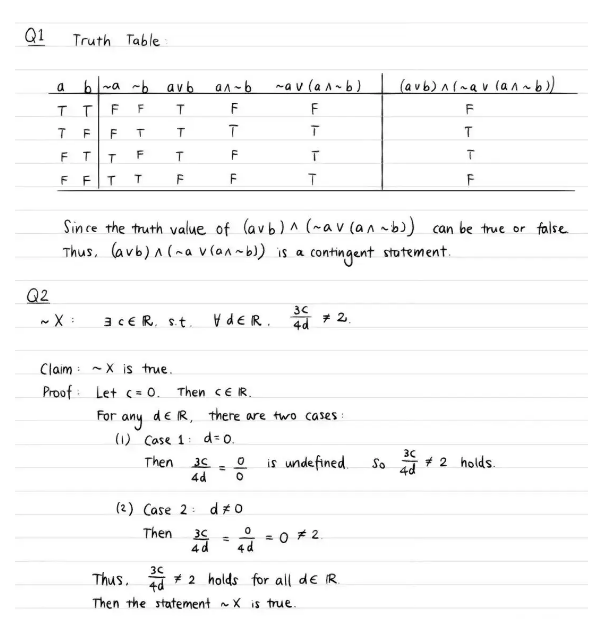 Q1 Truth Table
a b ~a ~b a∨b a∧~b ~a∨(a∧~b) (a∨b)∧(~a∨(a∧~b))
T T F F T F F F
T F F T T T T T
F T T F T F T T
F F T T F F T F
Since the truth value of (a∨b)∧(~a∨(a∧~b)) can be true or false.
Thus, (a∨b)∧(~a∨(a∧~b)) is a contingent statement.
Q2
~X : ∃ c∈ℝ, s.t. ∀ d∈ℝ, 3c/4d ≠ 2.
Claim : ~X is true.
Proof : Let c = 0. Then c∈ℝ.
For any d∈ℝ, there are two cases :
(1) Case 1 : d=0.
Then 3c/4d = 0/0 is undefined. So 3c/4d ≠ 2 holds.
(2) Case 2 : d≠0
Then 3c/4d = 0/4d = 0 ≠ 2.
Thus, 3c/4d ≠ 2 holds for all d∈ℝ.
Then the statement ~X is true.